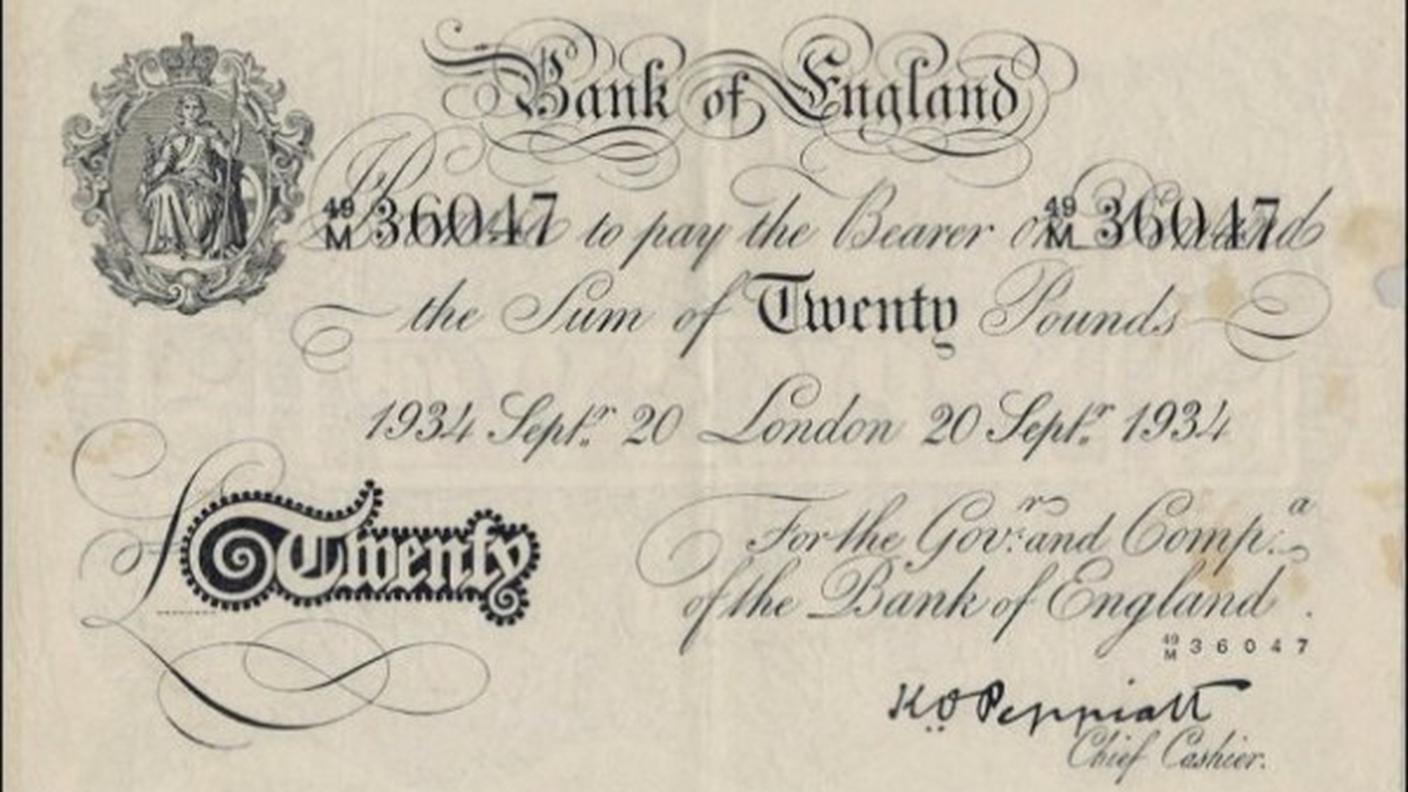 Bank of England
49/M 36047 to pay the Bearer on 49/M 36047
the Sum of Twenty Pounds
1934 Septr. 20 London 20 Septr. 1934
£ Twenty
For the Govr. and Compa.
of the Bank of England.
49/M 36047
K.O. Peppiatt
Chief Cashier.